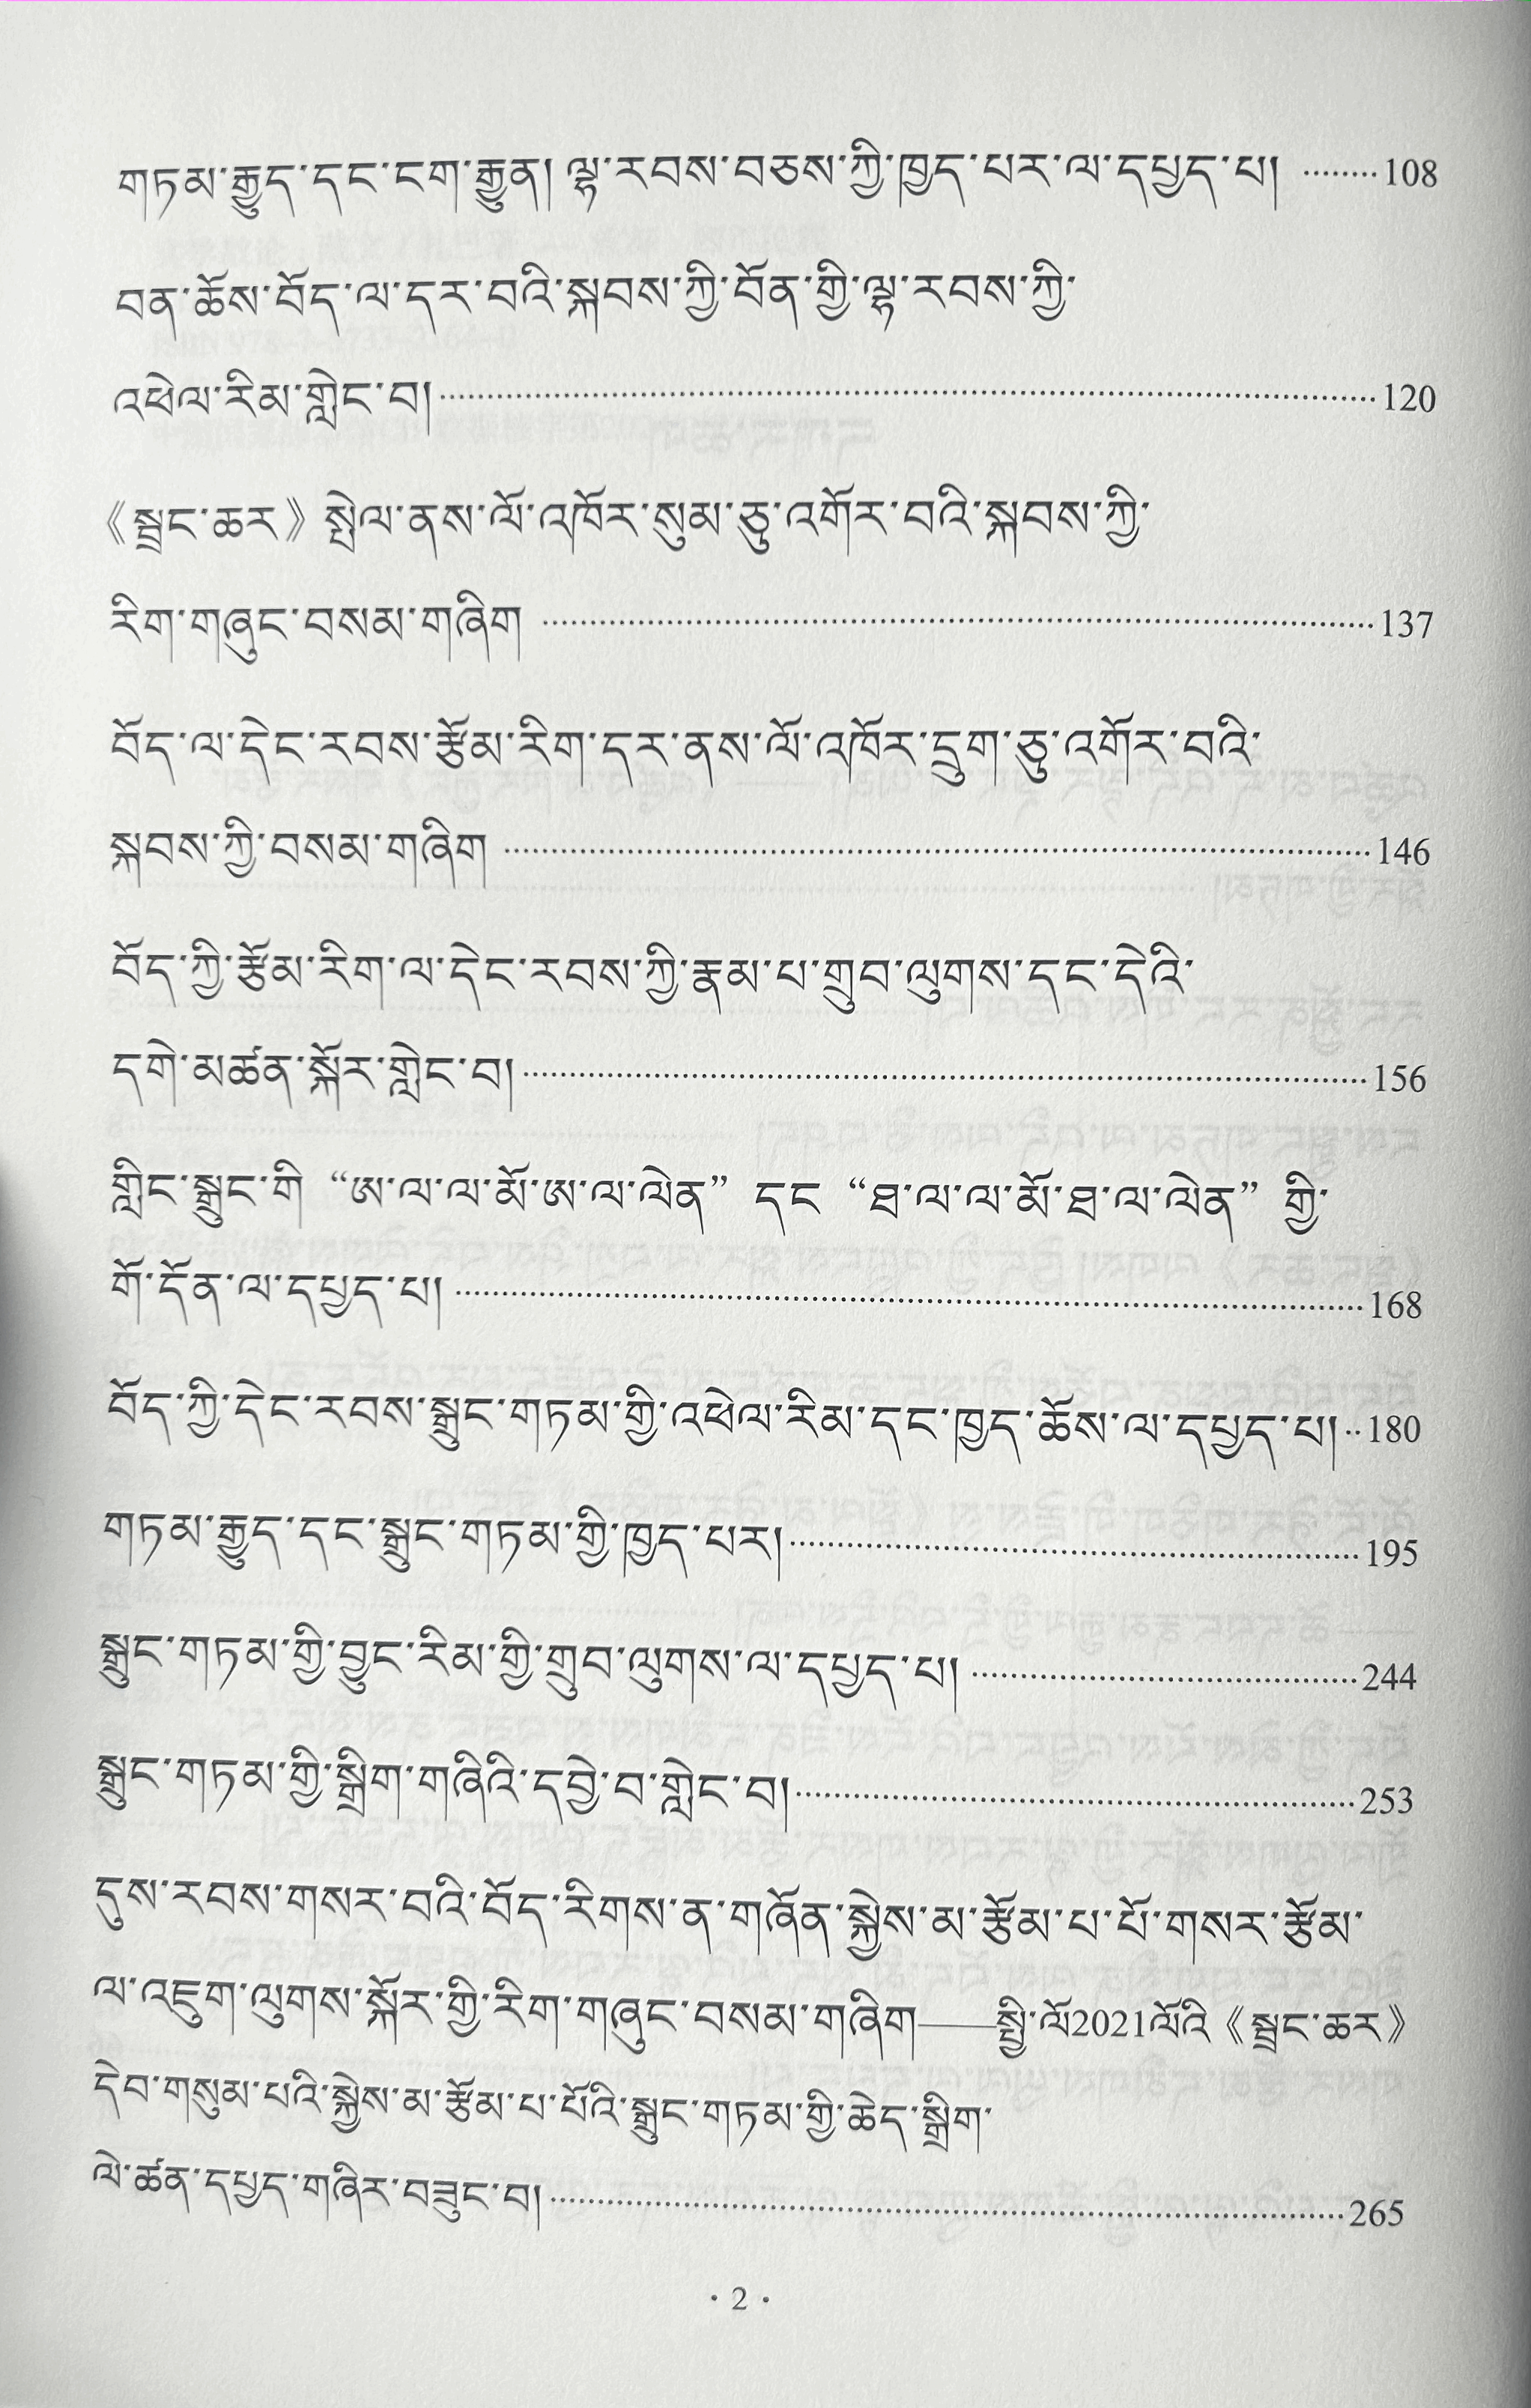 གཏམ་རྒྱུད་དང་ངག་རྒྱུན། ལྷ་རབས་བཅས་ཀྱི་ཁྱད་པར་ལ་དཔྱད་པ། ········108
བན་ཆོས་བོད་ལ་དར་བའི་སྐབས་ཀྱི་བོན་གྱི་ལྷ་རབས་ཀྱི་
འཕེལ་རིམ་གླེང་བ།········120
《སྦྲང་ཆར》 སྤེལ་ནས་ལོ་འཁོར་སུམ་ཅུ་འགོར་བའི་སྐབས་ཀྱི་
རིག་གཞུང་བསམ་གཞིག ········137
བོད་ལ་དེང་རབས་རྩོམ་རིག་དར་ནས་ལོ་འཁོར་དྲུག་ཅུ་འགོར་བའི་
སྐབས་ཀྱི་བསམ་གཞིག ········146
བོད་ཀྱི་རྩོམ་རིག་ལ་དེང་རབས་ཀྱི་རྣམ་པ་གྲུབ་ལུགས་དང་དེའི་
དགེ་མཚན་སྐོར་གླེང་བ།········156
གླིང་སྒྲུང་གི “ཨ་ལ་ལ་མོ་ཨ་ལ་ལེན” དང “ཐ་ལ་ལ་མོ་ཐ་ལ་ལེན” གྱི་
གོ་དོན་ལ་དཔྱད་པ། ········168
བོད་ཀྱི་དེང་རབས་སྒྲུང་གཏམ་གྱི་འཕེལ་རིམ་དང་ཁྱད་ཆོས་ལ་དཔྱད་པ།··180
གཏམ་རྒྱུད་དང་སྒྲུང་གཏམ་གྱི་ཁྱད་པར།········195
སྒྲུང་གཏམ་གྱི་བྱུང་རིམ་གྱི་གྲུབ་ལུགས་ལ་དཔྱད་པ། ········244
སྒྲུང་གཏམ་གྱི་སྒྲིག་གཞིའི་དབྱེ་བ་གླེང་བ།········253
དུས་རབས་གསར་བའི་བོད་རིགས་ན་གཞོན་སྐྱེས་མ་རྩོམ་པ་པོ་གསར་རྩོམ་
ལ་འཇུག་ལུགས་སྐོར་གྱི་རིག་གཞུང་བསམ་གཞིག——སྤྱི་ལོ2021ལོའི 《སྦྲང་ཆར》
དེབ་གསུམ་པའི་སྐྱེས་མ་རྩོམ་པ་པོའི་སྒྲུང་གཏམ་གྱི་ཆེད་སྒྲིག་
ལེ་ཚན་དཔྱད་གཞིར་བཟུང་བ།········265
· 2 ·